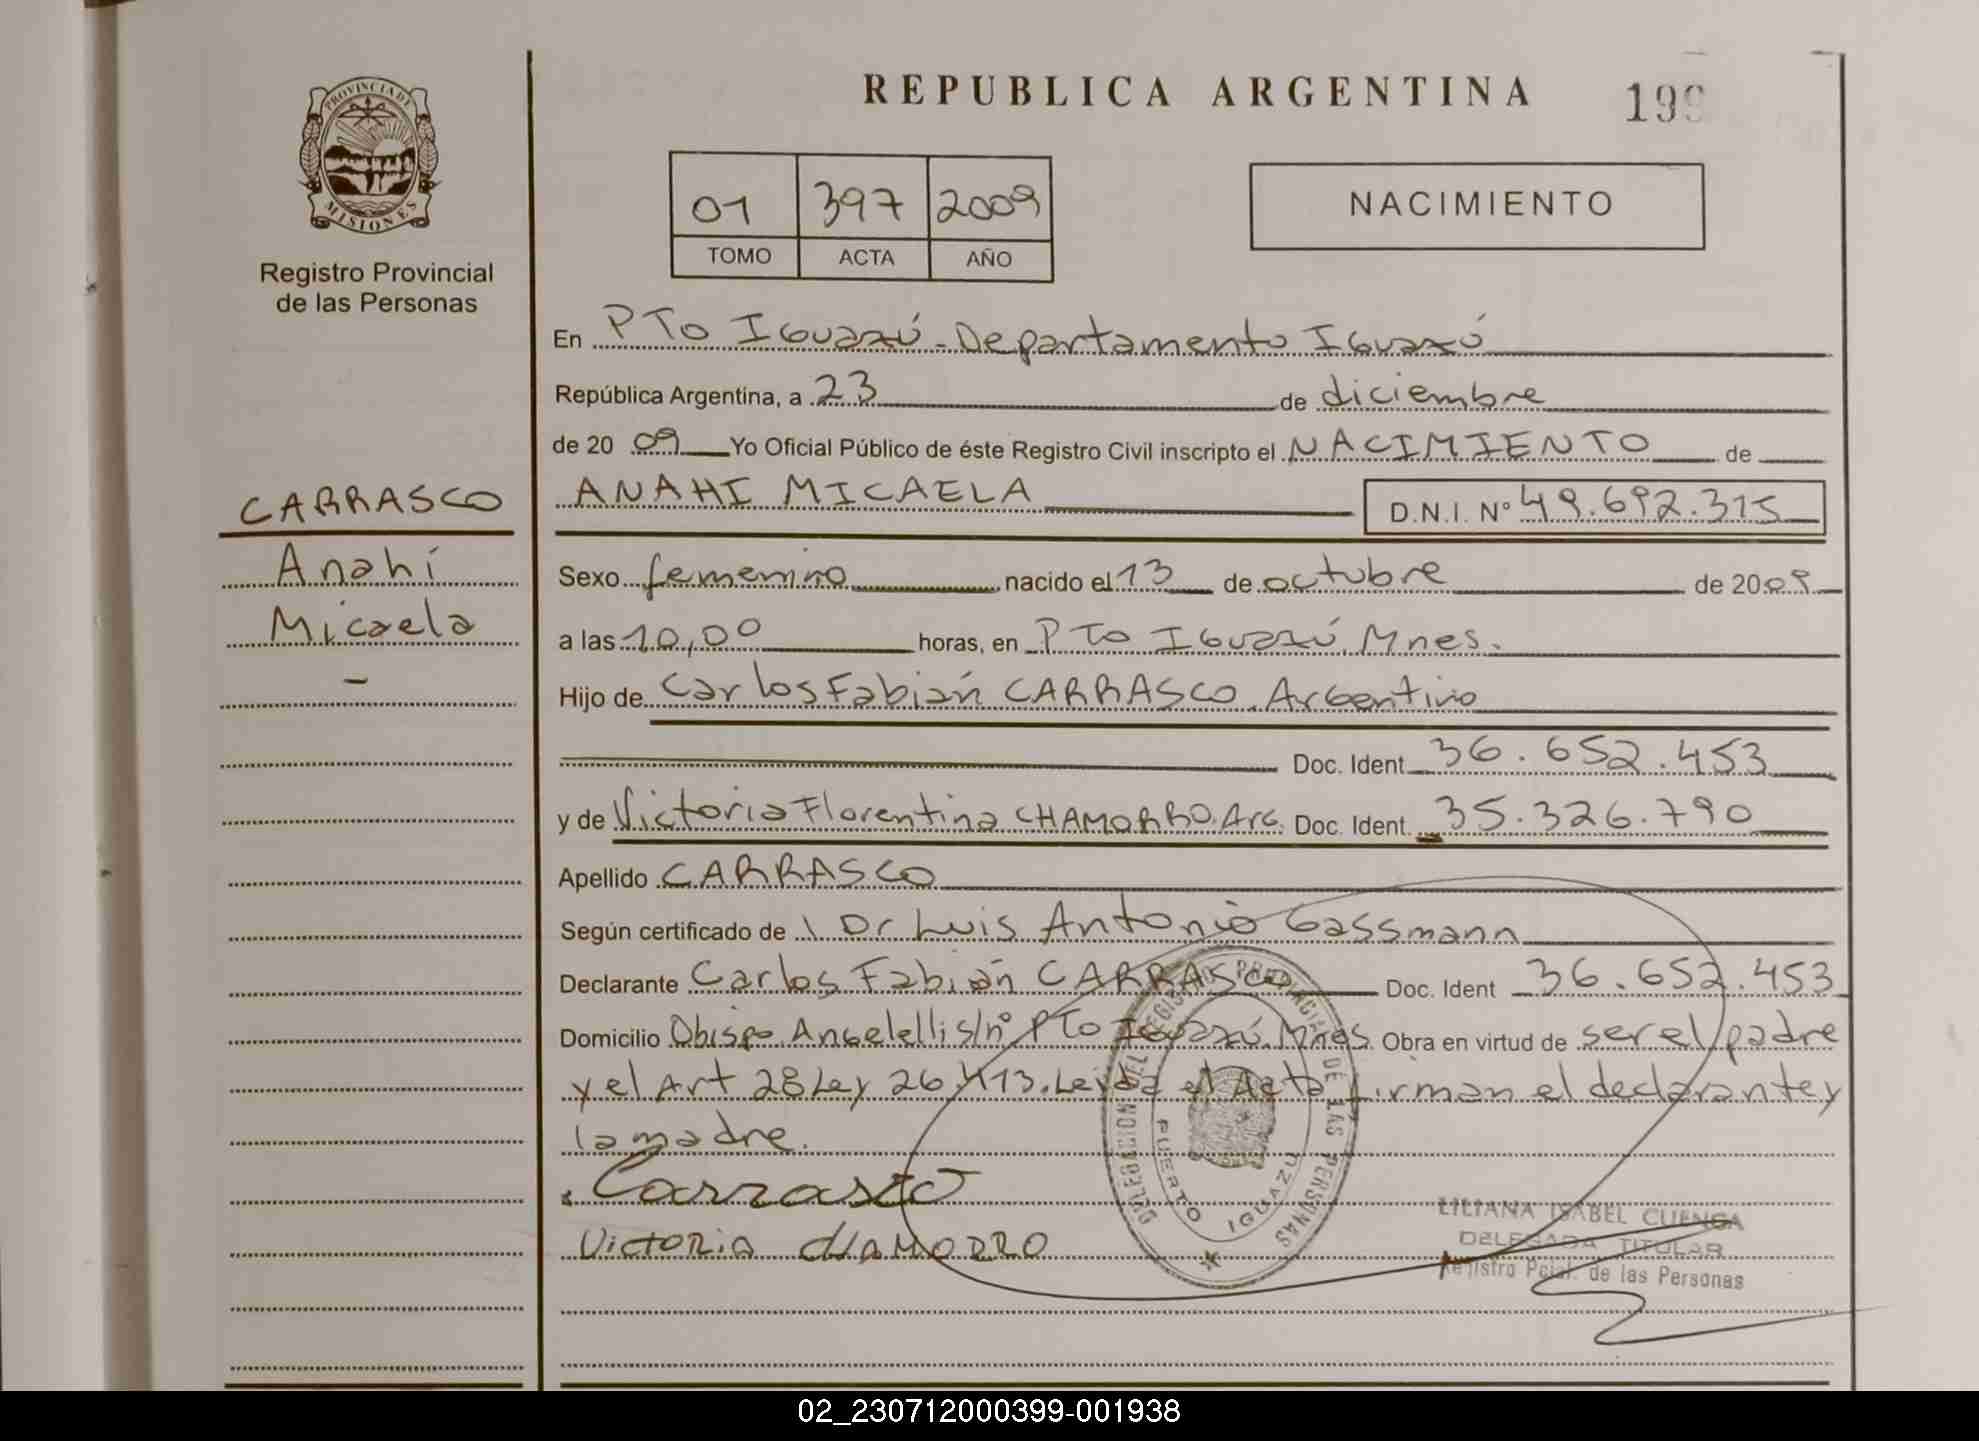 REPUBLICA ARGENTINA
199
PROVINCIA DE
MISIONES
Registro Provincial
de las Personas
01 397 2009
TOMO ACTA AÑO
NACIMIENTO
En PTO IGUAZÚ - Departamento IGUAZÚ
República Argentina, a 23 de diciembre
de 20 09 Yo Oficial Público de éste Registro Civil inscripto el NACIMIENTO de
ANAHI MICAELA D.N.I. Nº 49.692.315
CARRASCO
Anahí
Micaela
-
Sexo femenino nacido el 13 de octubre de 2009
a las 10,00 horas, en PTO IGUAZÚ, Mnes.
Hijo de Carlos Fabián CARRASCO, Argentino
Doc. Ident. 36.652.453
y de Victoria Florentina CHAMORRO. Arg. Doc. Ident. 35.326.790
Apellido CARRASCO
Según certificado de Dr Luis Antonio Gassmann
Declarante Carlos Fabián CARRASCO Doc. Ident 36.652.453
Domicilio Obispo Angelelli s/nº PTO IGUAZÚ. Mnes Obra en virtud de ser el padre
y el Art 28 Ley 26.413. Leída el Acta firman el declarante y
la madre.
Carrasco
Victoria CHAMORRO
DELEGACION DEL REGISTRO PROVINCIAL DE LAS PERSONAS
PUERTO IGUAZU
LILIANA ISABEL CUENCA
DELEGADA TITULAR
Registro Pcial. de las Personas
02_230712000399-001938